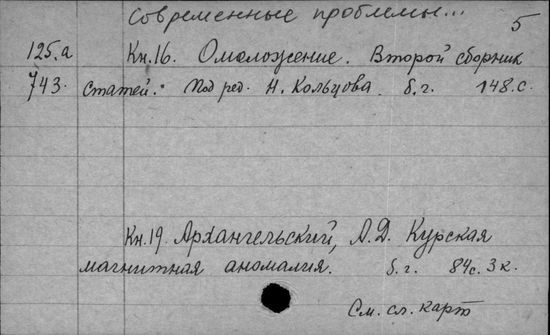 Современные проблемы...
5
125.а Кн.16. Омоложение. Второй сборник
743. статей. Под ред. Н. Кольцова. б.г. 148.с.
Кн.19. Архангельский, А.Д. Курская
магнитная аномалия. б.г. 84с. 3к.
См. сл. карт